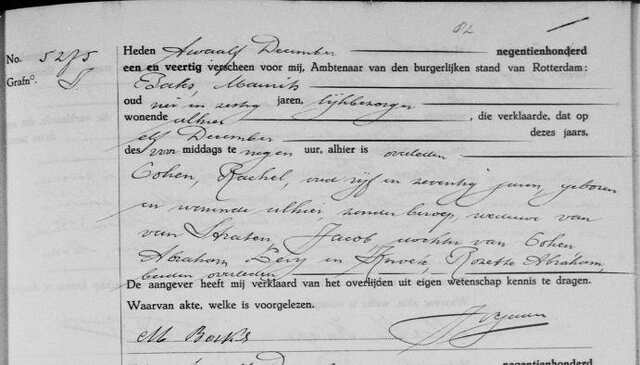 82
Heden twaalf December negentienhonderd
No. 5275
een en veertig verscheen voor mij, Ambtenaar van den burgerlijken stand van Rotterdam:
Grafn°.
Maurits
oud en zestig jaren, lijkbezorger
wonende alhier, die verklaarde, dat op
elf December dezes jaars,
des voor middags te negen uur, alhier is overleden
Cohen, Rachel, oud vijf en zeventig jaren, geboren
en wonende alhier, zonder beroep, weduwe van
van Straten, Jacob, dochter van Cohen
Abraham Levy en Rosette Abraham,
beiden overleden
De aangever heeft mij verklaard van het overlijden uit eigen wetenschap kennis te dragen.
Waarvan akte, welke is voorgelezen.
M
negentienhonderd